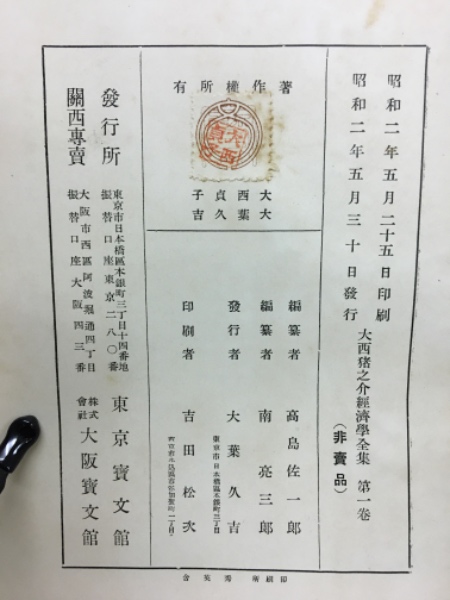 昭和二年五月二十五日印刷
昭和二年五月三十日發行
大西猪之介經濟學全集 第一卷
(非賣品)
著作權所有
大西貞子
大葉久吉
編纂者 高島佐一郎
編纂者 南亮三郎
發行者 大葉久吉
東京市日本橋區本銀町三丁目
印刷者 吉田松次
發行所
東京市日本橋區本銀町三丁目十四番地
振替口座東京二八〇番
東京寶文館
關西專賣
大阪市西區阿波堀通四丁目
振替口座大阪四三番
株式會社 大阪寶文館
印刷所 秀英舍